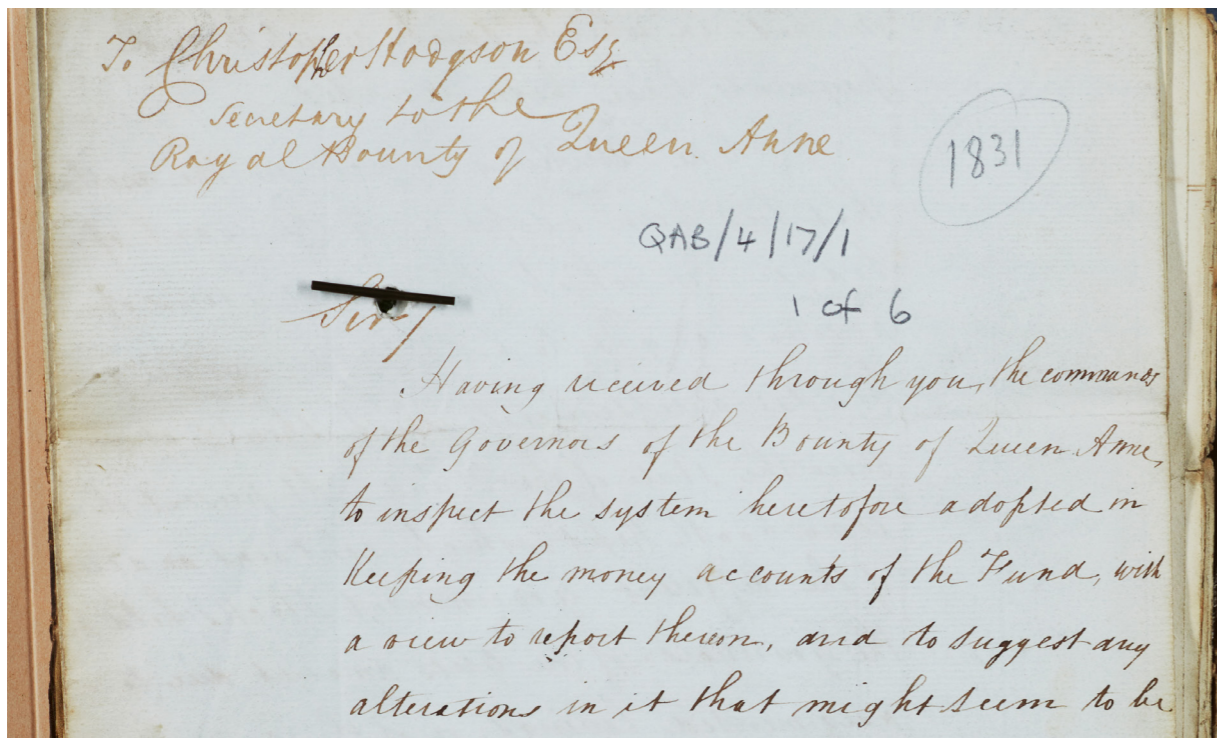 To Christopher Hodgson Esq
Secretary to the
Royal Bounty of Queen Anne
1831
QAB/4/17/1
1 of 6
Sir,
Having received through you, the commands
of the Governors of the Bounty of Queen Anne,
to inspect the system heretofore adopted in
Keeping the money accounts of the Fund, with
a view to report thereon, and to suggest any
alterations in it that might seem to be